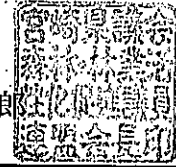 郎
宮崎県議会
森林林業活
性化促進議員
連盟会長印